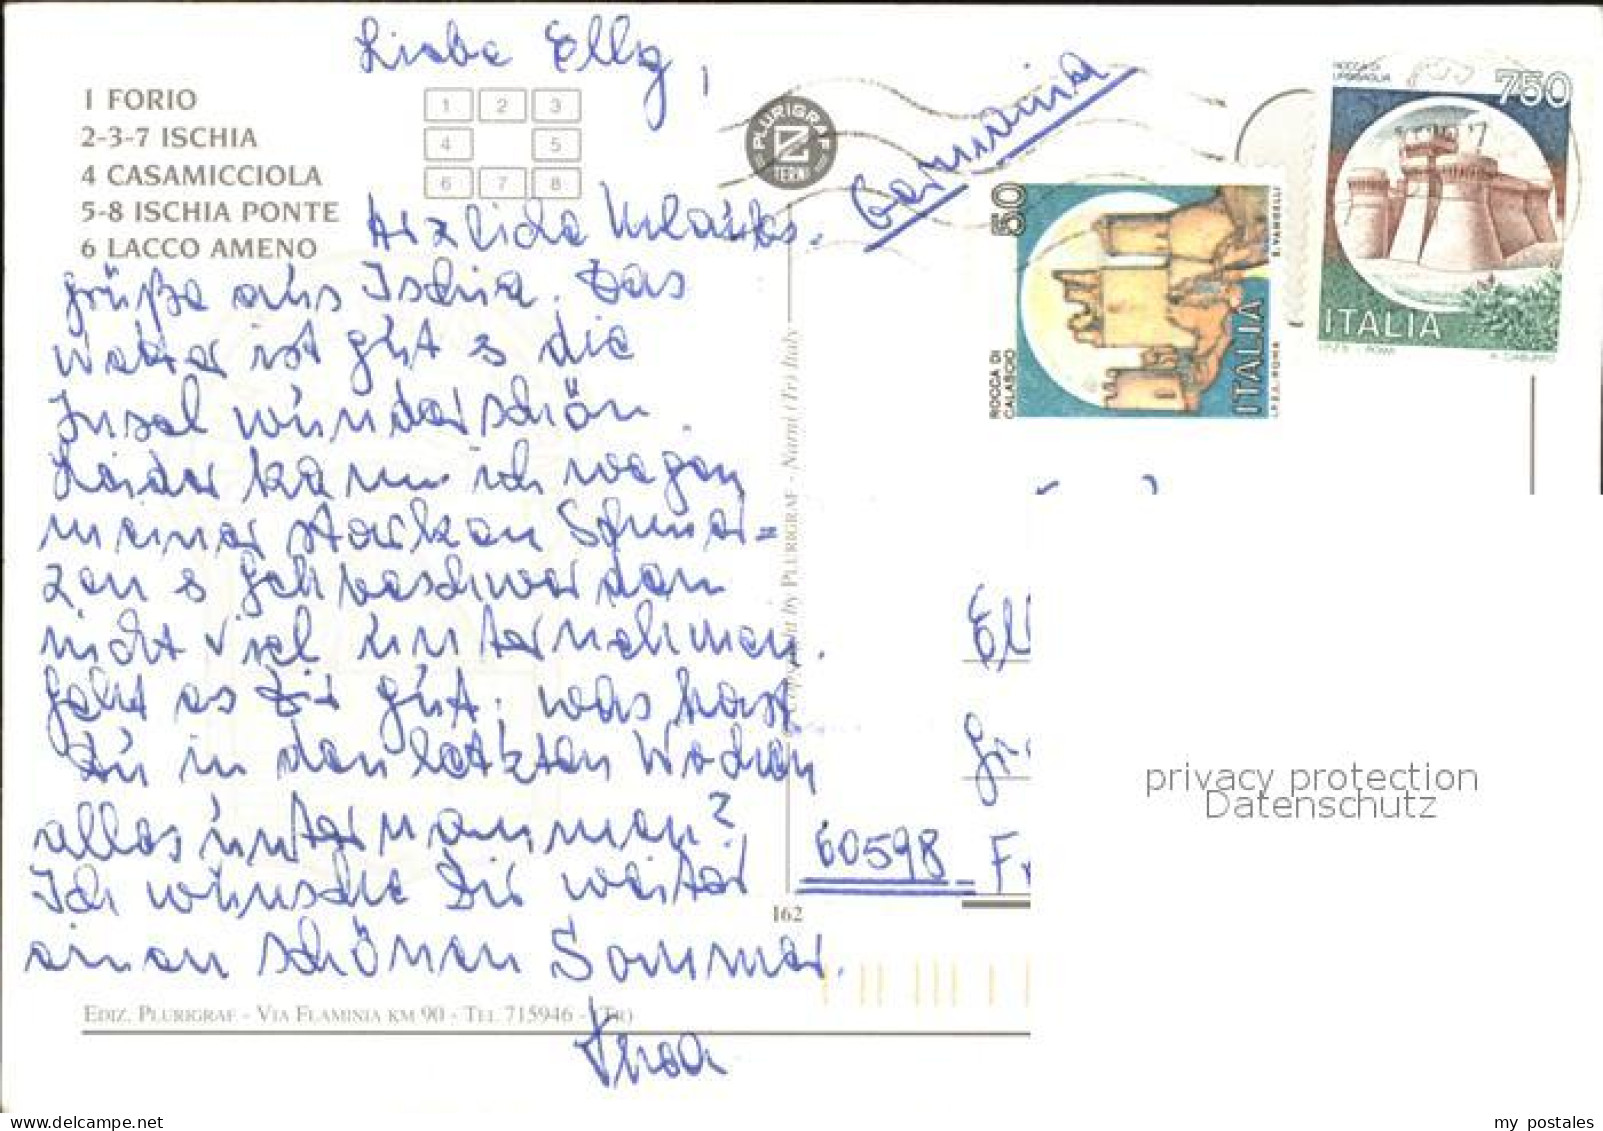 Liebe Elly,
1 FORIO
2-3-7 ISCHIA
4 CASAMICCIOLA
5-8 ISCHIA PONTE
6 LACCO AMENO
1 2 3
4 5
6 7 8
PLURIGRAF
TERNI
Germania
ROCCA DI
URBISAGLIA
750
ITALIA
I.P.Z.S. ROMA
50
ROCCA DI
CALASCIO
ITALIA
I.P.Z.S. ROMA
E. VANGELLI
Herzliche Urlaubs-
grüße aus Ischia. Das
Wetter ist gut & die
Insel wunderschön.
Leider kann ich wegen
meiner starken Schmer=
zen & Gehbeschwerden
nicht viel unternehmen.
Geht es Dir gut; was hast
Du in den letzten Wochen
alles unternommen?
Ich wünsche Dir weiter
einen schönen Sommer.
Copyright by PLURIGRAF - Narni (Tr) Italy
60598
162
EDIZ. PLURIGRAF - VIA FLAMINIA KM 90 - TEL 715946 - (TR)
privacy protection
Datenschutz
my postales